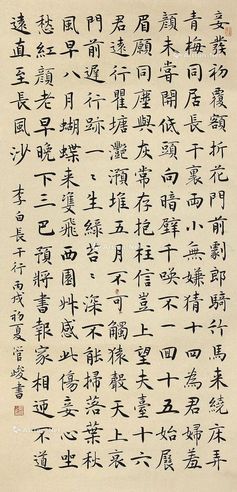 妾髮初覆額折花門前劇郎騎竹馬來繞床弄
青梅同居長干里兩小無嫌猜十四為君婦羞
顏未嘗開低頭向暗壁千喚不一回十五始展
眉願同塵與灰常存抱柱信豈上望夫臺十六
君遠行瞿塘灩澦堆五月不可觸猿聲天上哀
門前遲行跡一一生綠苔〻深不能掃落葉秋
風早八月蝴蝶來雙飛西園艸感此傷妾心坐
愁紅顏老早晚下三巴預將書報家相迎不道
遠直至長風沙 李白長干行丙戌初夏管峻書